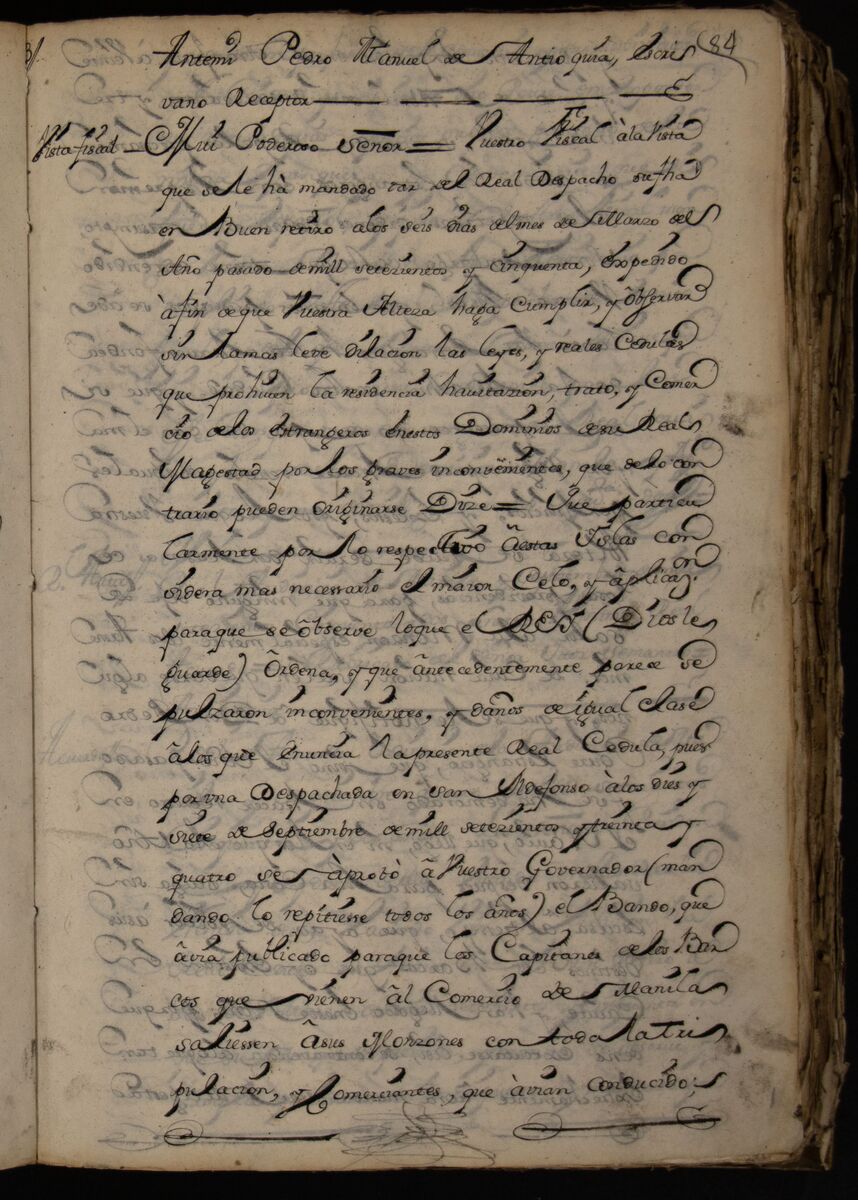 84
Antemi Pedro Manuel de Antioquia, Escri
vano Receptor
Vista fiscal = Mui Poderoso Señor = Vuestro Fiscal à la Vista
que se le hà mandado dar del Real Despacho su fha
en Buen retiro alos seis dias del mes de Marzo del
Año pasado de mill setezientos y cinquenta, expedido
à fin de que Vuestra Alteza haga Cumplir, y Observar
sin la mas leve dilacion las leyes, y reales Cedulas
que prohiven la residencia havitazion, trato, y Comer
cio de los estrangeros en estos Dominios de su Real
Magestad por los graves inconvenientes, que de lo con
trario pueden originarse Dize = Que particu
larmente por lo respectivo â estas Yslas con
sidera mas necessario el maior Celo, y âplicaz.on
para que se ôbserve loque el REY (Dios le
guarde) Ôrdena, y que ântecedentemente parece se
pulzaron inconvenientes, y daños de igual clase
âlos que enuncia la presente Real Cedula, pues
por vna Despachada en San Yldefonso à los dies y
siete de Septiembre de mill setezientos y treinta y
quatro se àprobò â Vuestro Governador (man
dando lo repitiesse todos los años) el Bando, que
âvia publicado para que los Capitanes de los Bar
cos que vienen âl Comercio de Manila
saliessen âsus Monzones con toda la tri
pulacion, y Comerciantes, que àvian conducido;